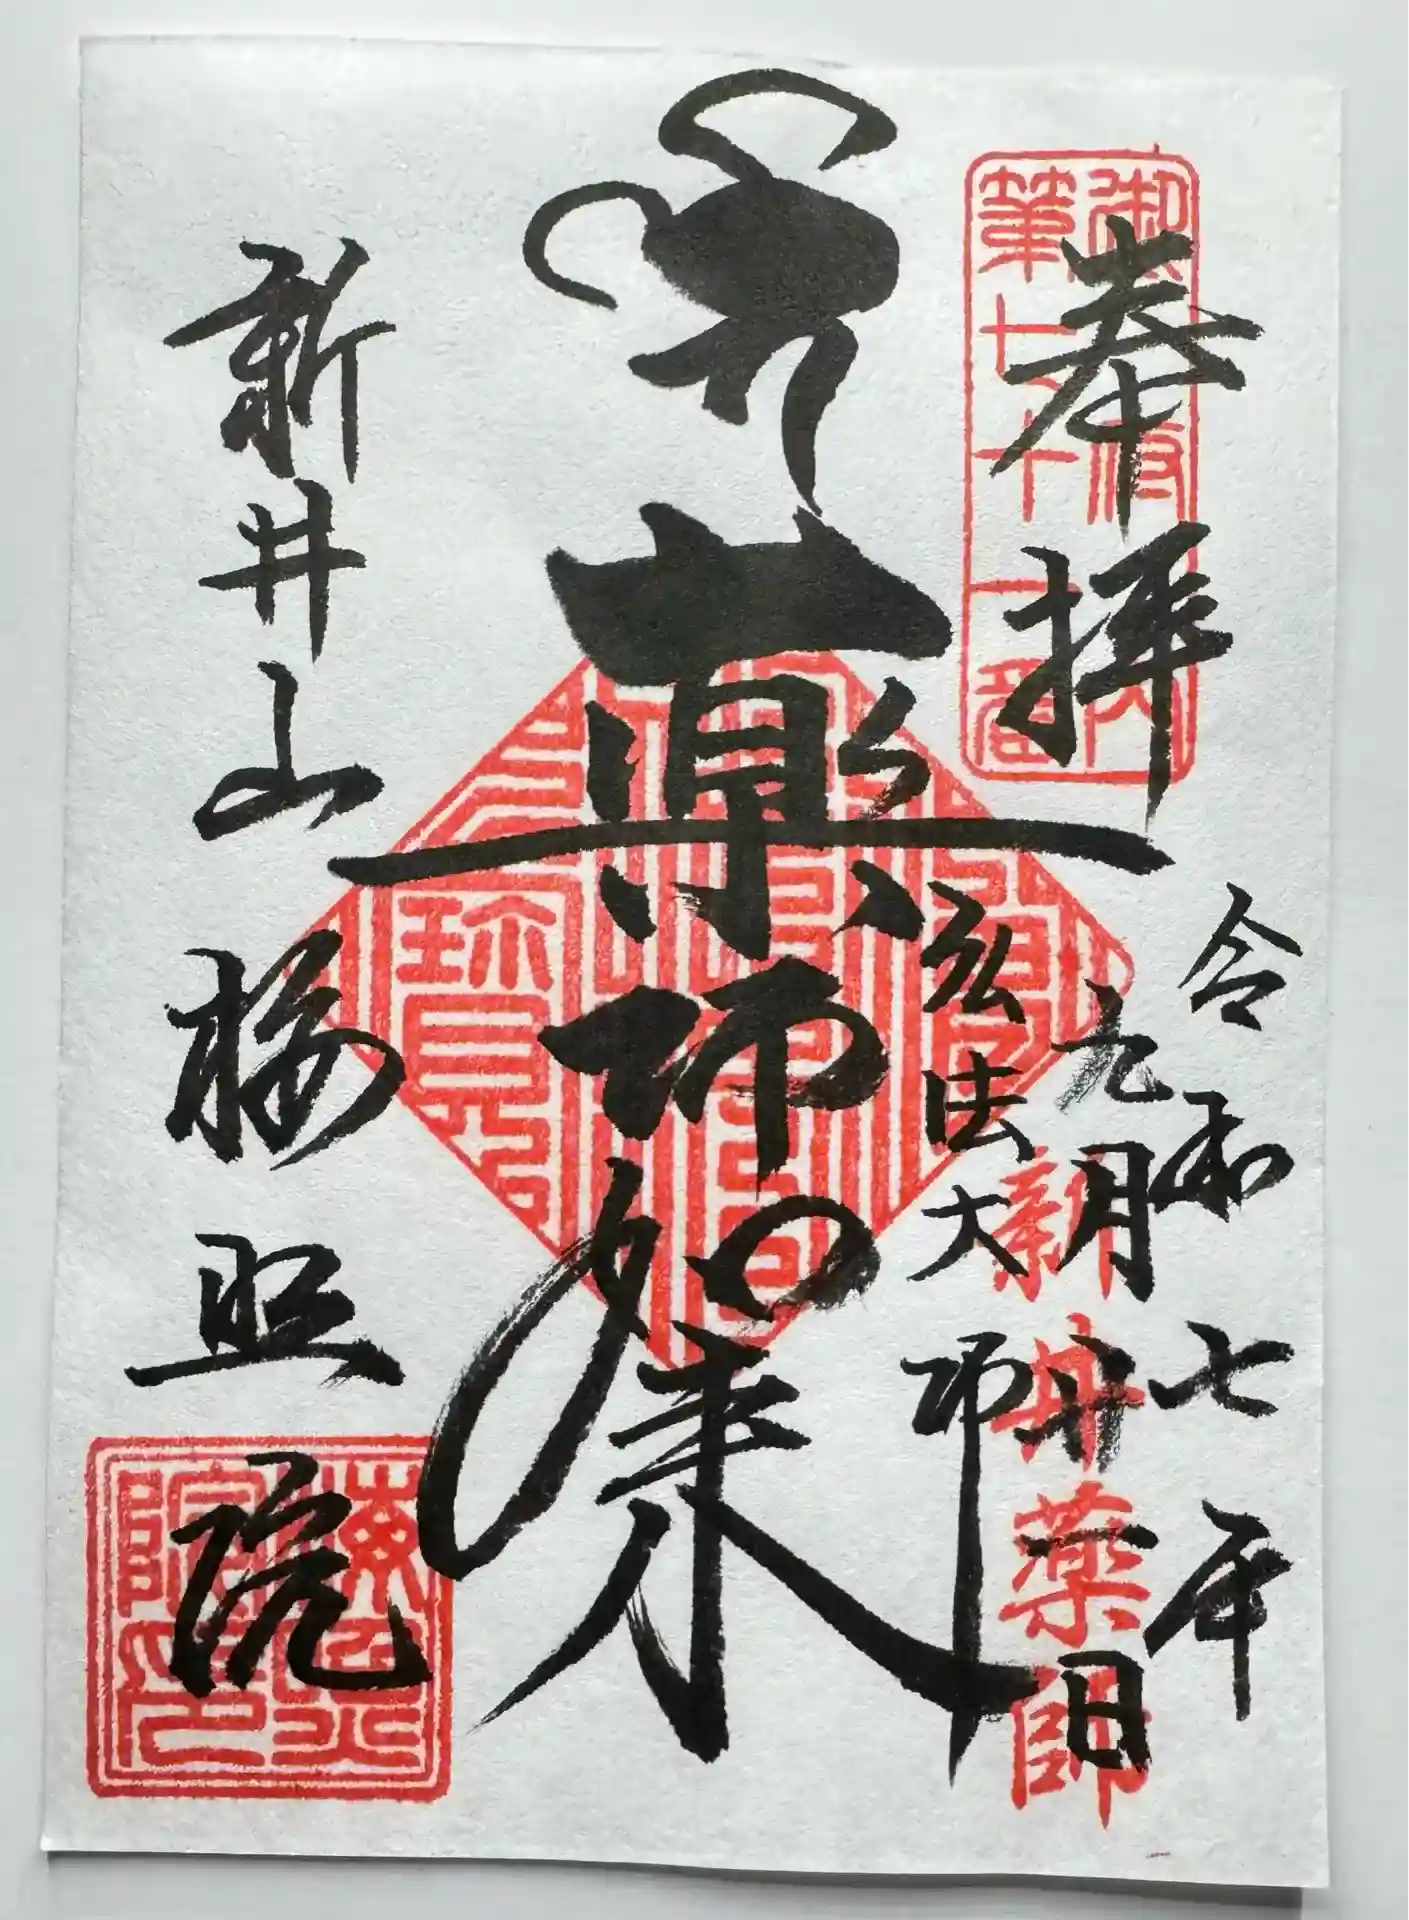 奉拝
令和七年
九月廿一日
弘法大師
薬師如来
新井山
梅照院
御府内
第七十一番
新井薬師